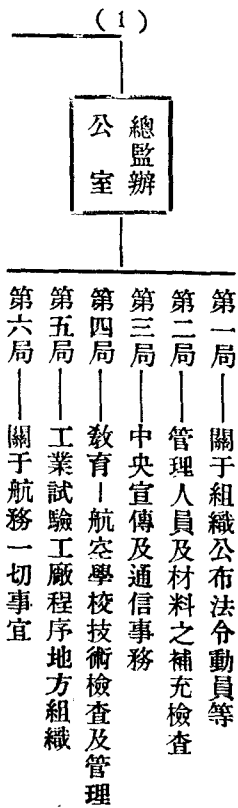 (1)
總監辦
公室
第一局——關于組織公布法令動員等
第二局——管理人員及材料之補充檢查
第三局——中央宣傳及通信事務
第四局——敎育－航空學校技術檢查及管理
第五局——工業試驗工廠程序地方組織
第六局——關于航務一切事宜